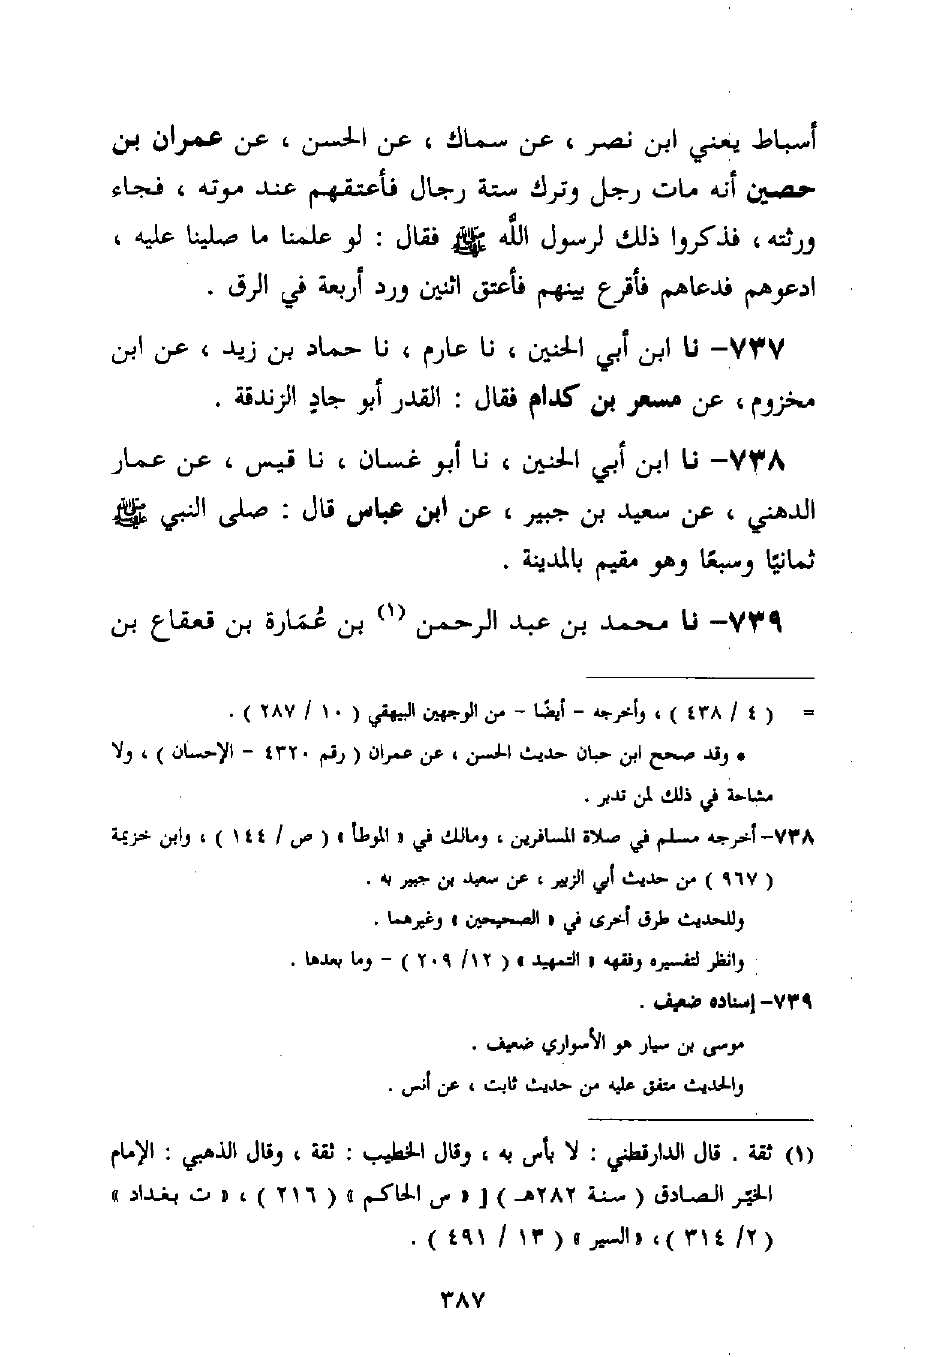 أسباط يعني ابن نصر ، عن سماك ، عن الحسن ، عن عمران بن
حصين أنه مات رجل وترك ستة رجال فأعتقهم عند موته ، فجاء
ورثته ، فذكروا ذلك لرسول اللَّه ﷺ فقال : لو علمنا ما صلينا عليه ،
ادعوهم فدعاهم فأقرع بينهم فأعتق اثنين ورد أربعة في الرق .
٧٣٧– نا ابن أبي الحنين ، نا عارم ، نا حماد بن زيد ، عن ابن
مخزوم ، عن مسعر بن كدام فقال : القدر أبو جادٍ الزندقة .
٧٣٨– نا ابن أبي الحنين ، نا أبو غسان ، نا قيس ، عن عمار
الدهني ، عن سعيد بن جبير ، عن ابن عباس قال : صلى النبي ﷺ
ثمانيًا وسبعًا وهو مقيم بالمدينة .
٧٣٩– نا محمد بن عبد الرحمن (١) بن عُمَارة بن قعقاع بن
= ( ٤ / ٤٣٨ ) ، وأخرجه – أيضًا – من الوجهين البيهقي ( ١٠ / ٢٨٧ ) .
• وقد صحح ابن حبان حديث الحسن ، عن عمران ( رقم ٤٣٢٠ – الإحسان ) ، ولا
مشاحة في ذلك لمن تدبر .
٧٣٨– أخرجه مسلم في صلاة المسافرين ، ومالك في « الموطأ » ( ص / ١٤٤ ) ، وابن خزيمة
( ٩٦٧ ) من حديث أبي الزبير ، عن سعيد بن جبير به .
وللحديث طرق أخرى في « الصحيحين » وغيرهما .
وانظر لتفسيره وفقهه « التمهيد » ( ١٢/ ٢٠٩ ) – وما بعدها .
٧٣٩– إسناده ضعيف .
موسى بن سيار هو الأسواري ضعيف .
والحديث متفق عليه من حديث ثابت ، عن أنس .
(١) ثقة . قال الدارقطني : لا بأس به ، وقال الخطيب : ثقة ، وقال الذهبي : الإمام
الخيّر الصادق ( سنة ٢٨٢هـ ) [ « س الحاكم » ( ٢١٦ ) ، « ت بغداد »
( ٢/ ٣١٤ )، « السير » ( ١٣ / ٤٩١ ) .
٣٨٧